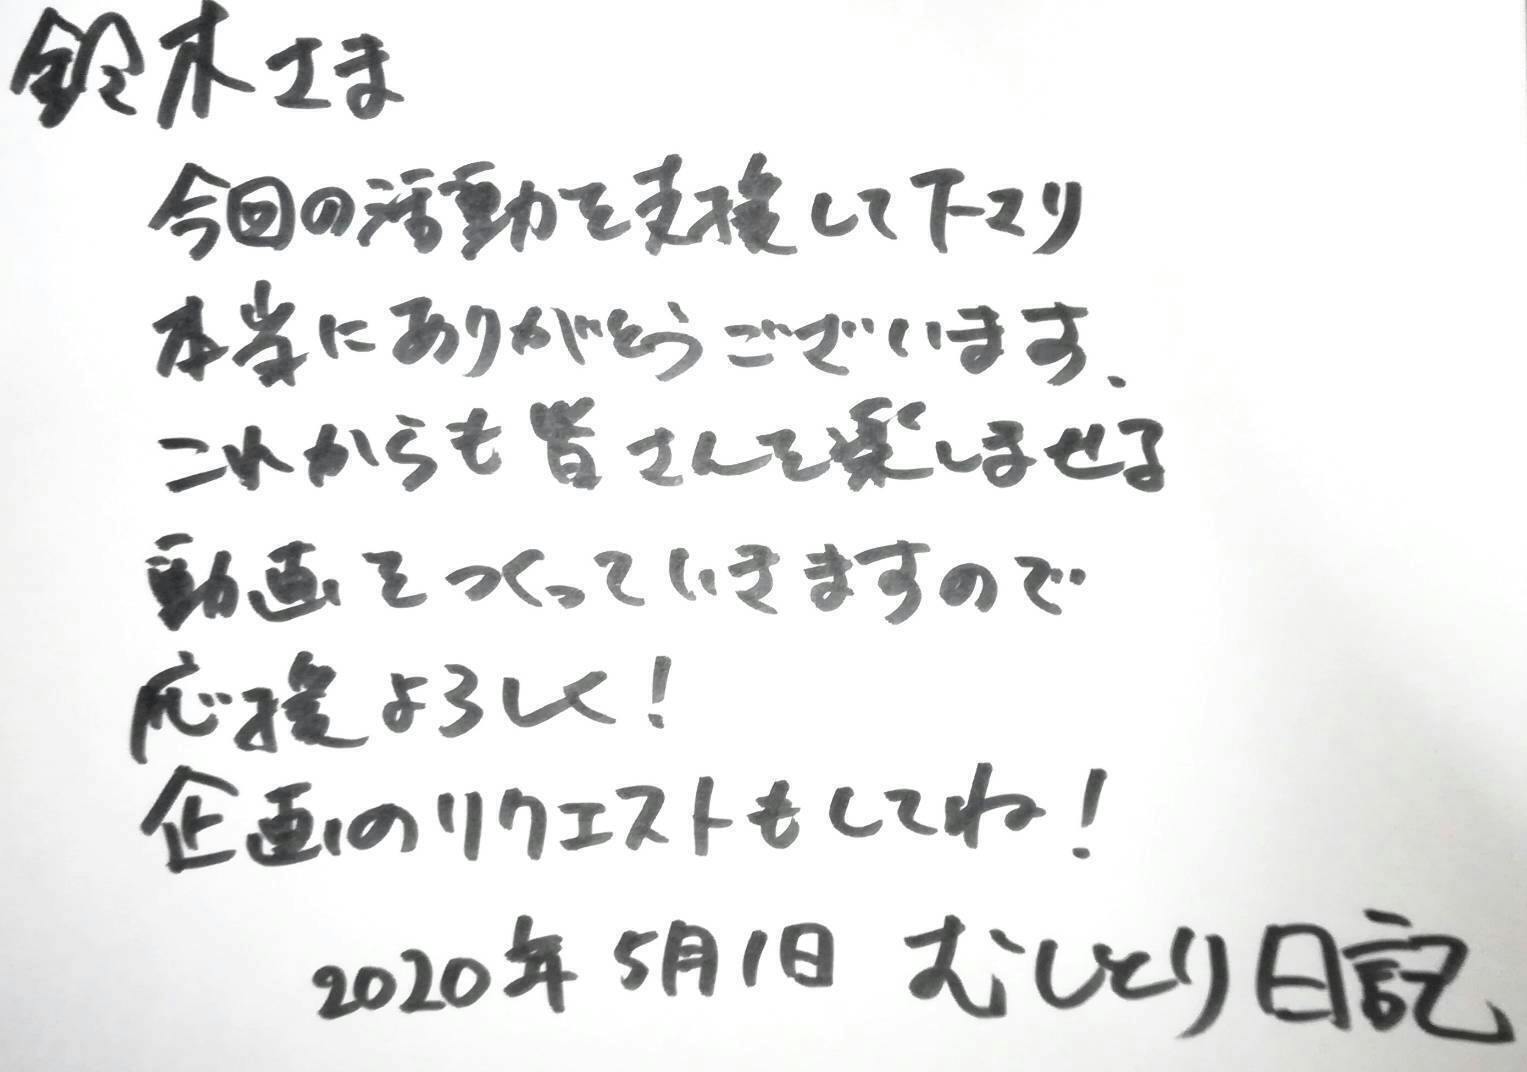 鈴木さま
今回の活動を支援して下さり
本当にありがとうございます.
これからも皆さんを楽しませる
動画をつくっていきますので
応援よろしく!
企画のリクエストもしてね!
2020年5月1日 むしとり日記